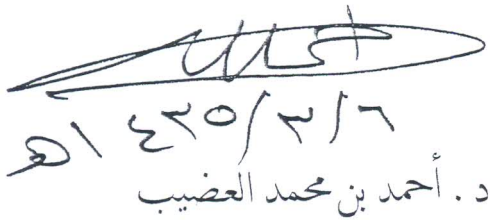 ٦/٣/١٤٣٥هـ
د. أحمد بن محمد العضيب